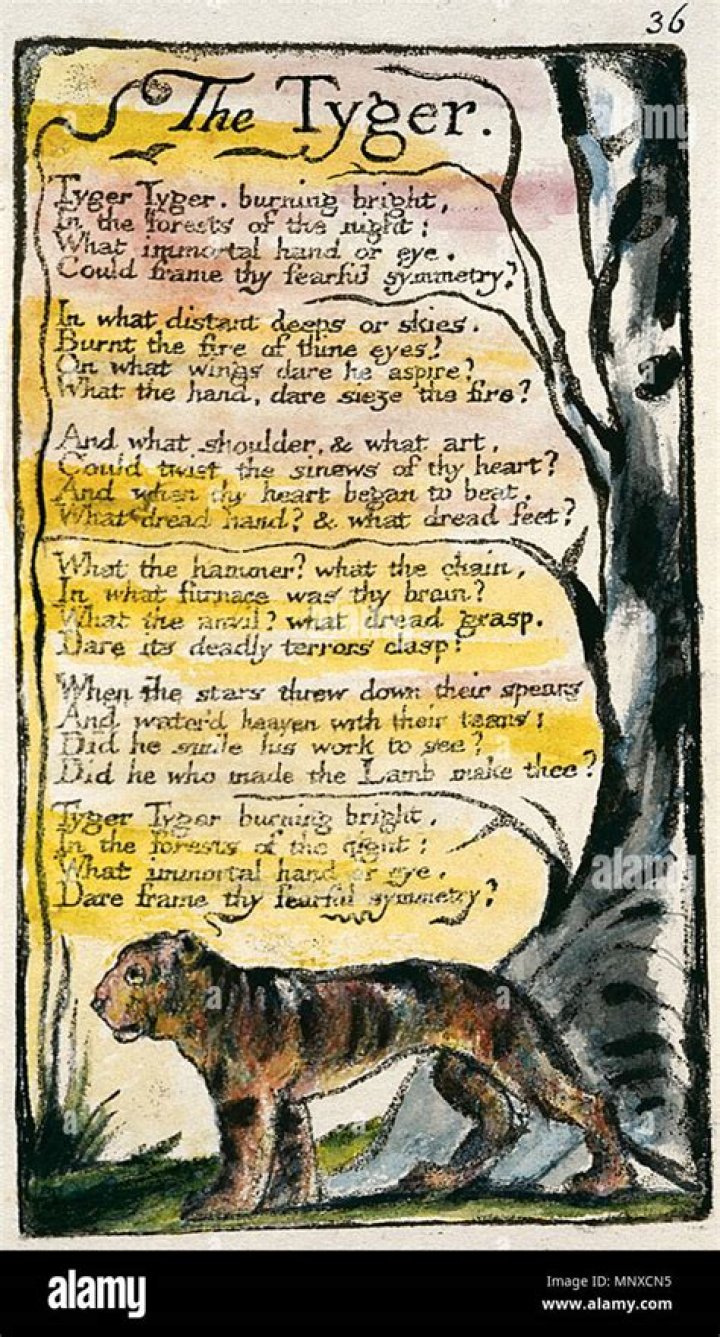 36
The Tyger.
Tyger Tyger. burning bright,
In the forests of the night:
What immortal hand or eye.
Could frame thy fearful symmetry?
In what distant deeps or skies.
Burnt the fire of thine eyes?
On what wings dare he aspire?
What the hand, dare sieze the fire?
And what shoulder, & what art,
Could twist the sinews of thy heart?
And when thy heart began to beat,
What dread hand? & what dread feet?
What the hammer? what the chain,
In what furnace was thy brain?
What the anvil? what dread grasp.
Dare its deadly terrors clasp!
When the stars threw down their spears
And water'd heaven with their tears:
Did he smile his work to see?
Did he who made the Lamb make thee?
Tyger Tyger burning bright,
In the forests of the night:
What immortal hand or eye,
Dare frame thy fearful symmetry?
alamy
alamy
alamy
alamy
Image ID: MNXCN5
www.alamy.com